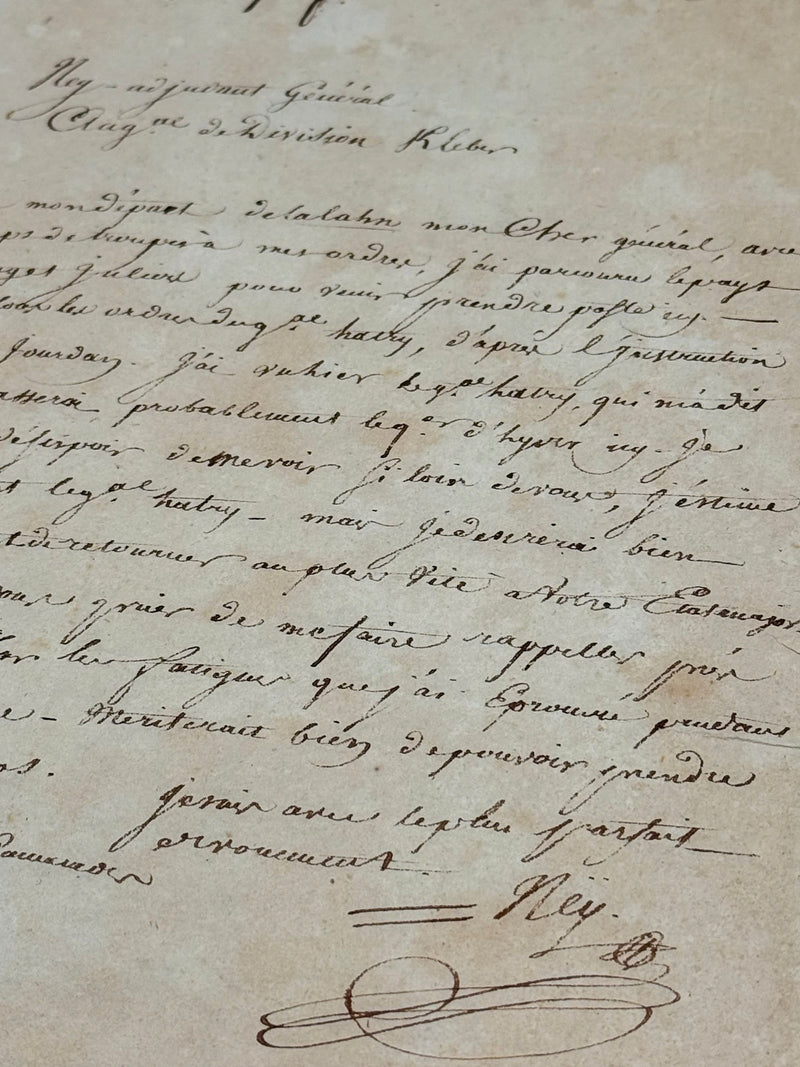 Ney - adjudant Général
au g.al de Division Kleber
mon départ delalahn mon Cher général, avec
ps de troupes à mes ordres, j'ai parcouru lepays
juliers pour venir prendre poste icy. —
les ordres du g.al hatry, d'après l'jnstruction
Jourdan. j'ai vu hier le g.al hatry, qui m'a dit
probablement le q.er d'hyver icy. Je
désespoir de me voir si loin de vous, j'éstime
t le g.al hatry - mais je desirerai bien
t de retourner au plus vite a Votre Etatmajor
prier de me faire rappeller près
les fatigues que j'ai Eprouvé pendant
e - Meriterait bien de pouvoir prendre
os.
je suis avec le plus parfait
devouement.
Ney.